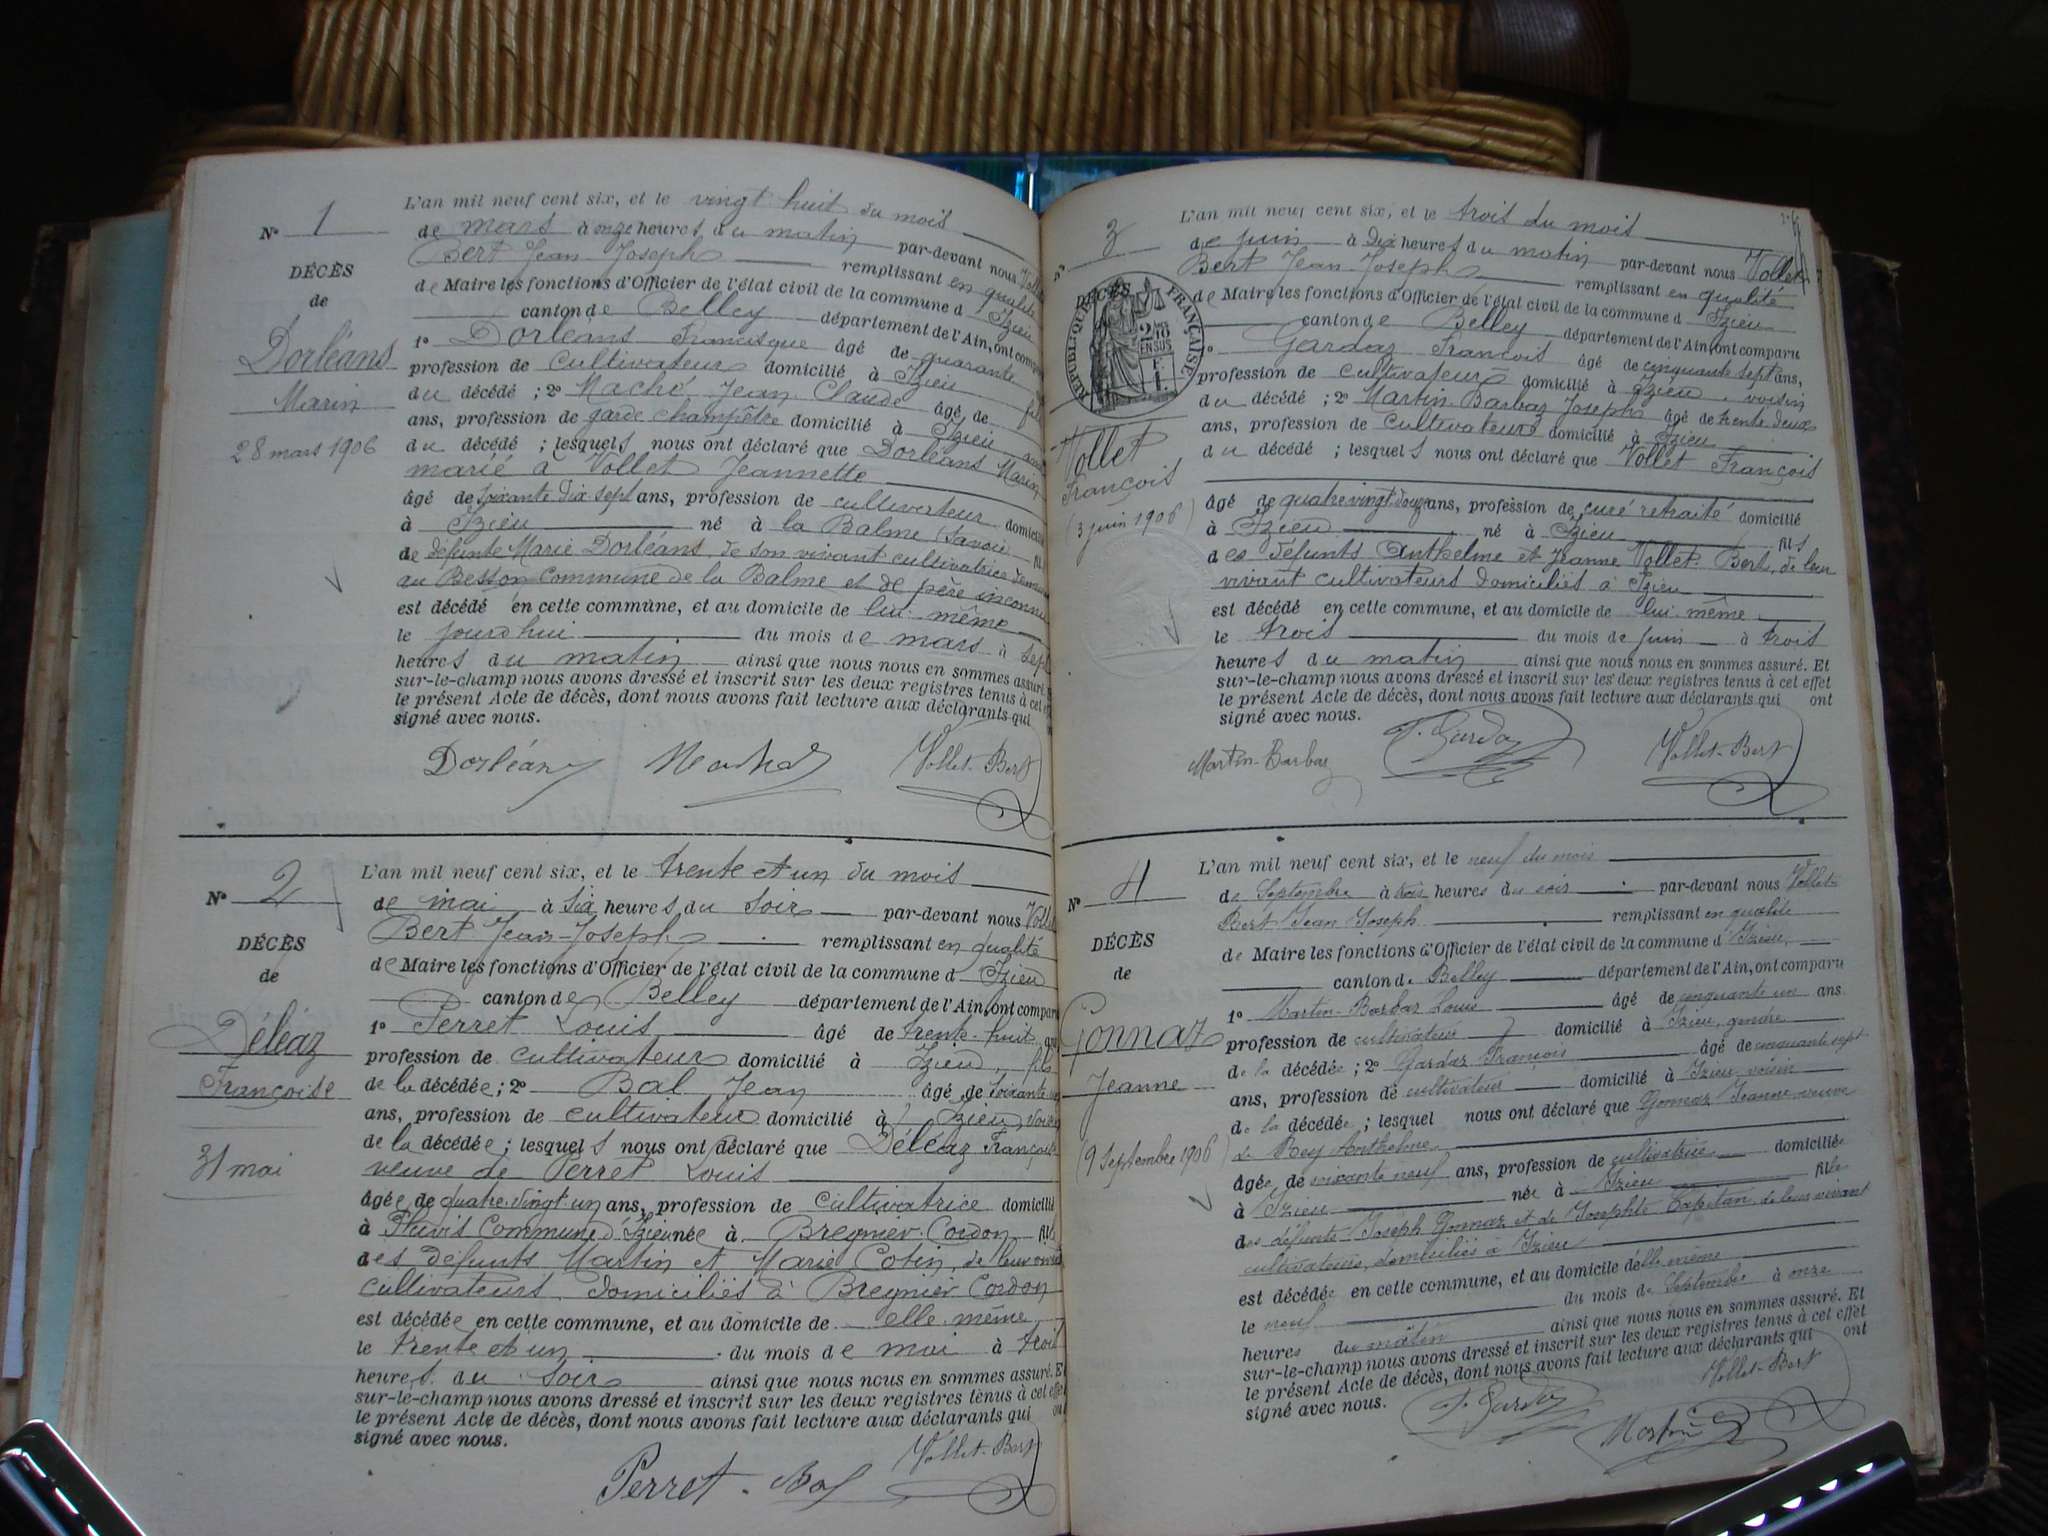 L'an mil neuf cent six, et le vingt huit du mois
N° 1
de mars à onze heures du matin par-devant nous
Bert Jean-Joseph remplissant en qualité
DÉCÈS
de Maire les fonctions d'Officier de l'état civil de la commune d Izieu
de
canton de Belley département de l'Ain, ont
1° Dorléans Francisque âgé de quarante
Dorléans
profession de cultivateur domicilié à Izieu fils
Marin
du décédé ; 2° Maché Jean Claude âgé de
ans, profession de garde champêtre domicilié à Izieu
28 mars 1906
du décédé ; lesquels nous ont déclaré que Dorléans Marin
marié à Vollet Jeannette
âgé de soixante dix sept ans, profession de cultivateur
à Izieu né à la Balme (Savoie
de défunte Marie Dorléans, de son vivant cultivatrice
au Besson commune de la Balme et de père inconnu
est décédé en cette commune, et au domicile de lui-même
le jourd'hui du mois de mars à sept
heures du matin ainsi que nous nous en sommes assuré.
sur-le-champ nous avons dressé et inscrit sur les deux registres tenus à cet
le présent Acte de décès, dont nous avons fait lecture aux déclarants qui
signé avec nous.
Dorléans Vollet-Bert
L'an mil neuf cent six, et le trente et un du mois
N° 2
de mai à six heures du soir par-devant nous
Bert Jean-Joseph remplissant en qualité
DÉCÈS
de Maire les fonctions d'Officier de l'état civil de la commune d Izieu
de
canton de Belley département de l'Ain, ont
1° Perret Louis âgé de trente-huit
Déléaz
profession de cultivateur domicilié à Izieu, fils
Françoise
de la décédée ; 2° Bal Jean âgé de soixante
ans, profession de cultivateur domicilié à Izieu,
31 mai
de la décédée ; lesquels nous ont déclaré que Déléaz Françoise
veuve de Perret Louis
âgée de quatre-vingt un ans, profession de cultivatrice domicilié
à commune d'Izieu née à Bregnier-Cordon
des défunts Martin et Marie Cotin, de leur
cultivateurs, domiciliés à Bregnier Cordon
est décédée en cette commune, et au domicile de elle-même
le trente et un du mois de mai à trois
heures du soir ainsi que nous nous en sommes assuré. Et
sur-le-champ nous avons dressé et inscrit sur les deux registres tenus à cet effet
le présent Acte de décès, dont nous avons fait lecture aux déclarants qui
signé avec nous.
Perret Bal Vollet-Bert
L'an mil neuf cent six, et le trois du mois
N° 3
de juin à dix heures du matin par-devant nous Vollet
Bert Jean-Joseph remplissant en qualité
DÉCÈS
de Maire les fonctions d'Officier de l'état civil de la commune d Izieu
RÉPUBLIQUE FRANÇAISE
canton de Belley département de l'Ain, ont comparu
1° Gardaz François âgé de cinquante sept ans,
profession de cultivateur domicilié à Izieu, voisin
du décédé ; 2° Martin-Barbaz Joseph âgé de trente deux
ans, profession de cultivateur domicilié à Izieu
Vollet
du décédé ; lesquels nous ont déclaré que Vollet François
François
âgé de quatre vingt douze ans, profession de curé retraité domicilié
(3 juin 1906)
à Izieu né à Izieu fils
des défunts Anthelme et Jeanne Vollet-Bert, de leur
vivant cultivateurs domiciliés à Izieu
est décédé en cette commune, et au domicile de lui-même
le trois du mois de juin à trois
heures du matin ainsi que nous nous en sommes assuré. Et
sur-le-champ nous avons dressé et inscrit sur les deux registres tenus à cet effet
le présent Acte de décès, dont nous avons fait lecture aux déclarants qui ont
signé avec nous.
Martin-Barbaz F. Gardaz Vollet-Bert
L'an mil neuf cent six, et le neuf du mois
N° 4
de Septembre à trois heures du soir par-devant nous Vollet
Bert Jean Joseph remplissant en qualité
DÉCÈS
de Maire les fonctions d'Officier de l'état civil de la commune d'Izieu
de
canton de Belley département de l'Ain, ont comparu
1° Martin-Barbaz Louis âgé de cinquante un ans
Gonnaz
profession de cultivateur domicilié à Izieu, gendre
Jeanne
de la décédée ; 2° Gardaz François âgé de cinquante sept
ans, profession de cultivateur domicilié à Izieu voisin
de la décédée ; lesquel nous ont déclaré que Gonnaz Jeanne veuve
(9 Septembre 1906)
de Rey Anthelme
âgée de soixante neuf ans, profession de cultivatrice domiciliée
à Izieu née à Izieu fille
des défunts Joseph Gonnaz et de Josephte Capitan, de leur vivant
cultivateurs, domiciliés à Izieu
est décédée en cette commune, et au domicile d'elle même
le neuf du mois de Septembre à onze
heures du matin ainsi que nous nous en sommes assuré. Et
sur-le-champ nous avons dressé et inscrit sur les deux registres tenus à cet effet
le présent Acte de décès, dont nous avons fait lecture aux déclarants qui ont
signé avec nous.
F. Gardaz Martin Vollet-Bert